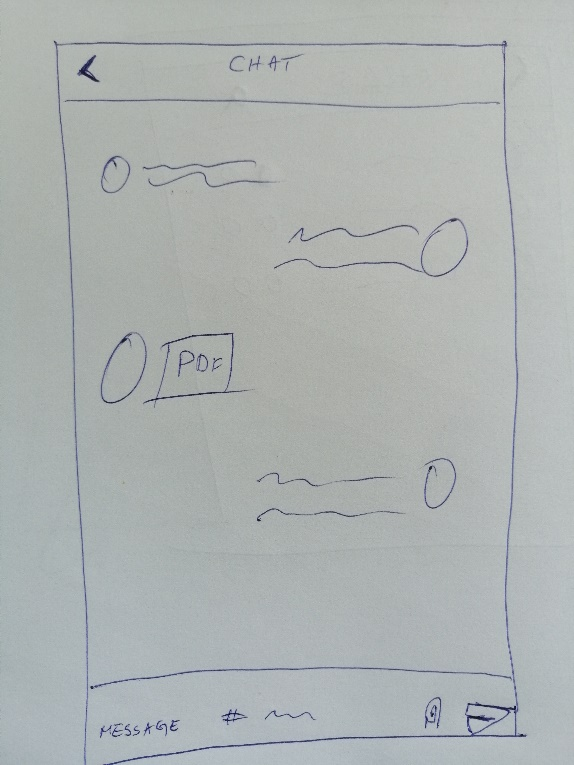 CHAT
PDF
MESSAGE #